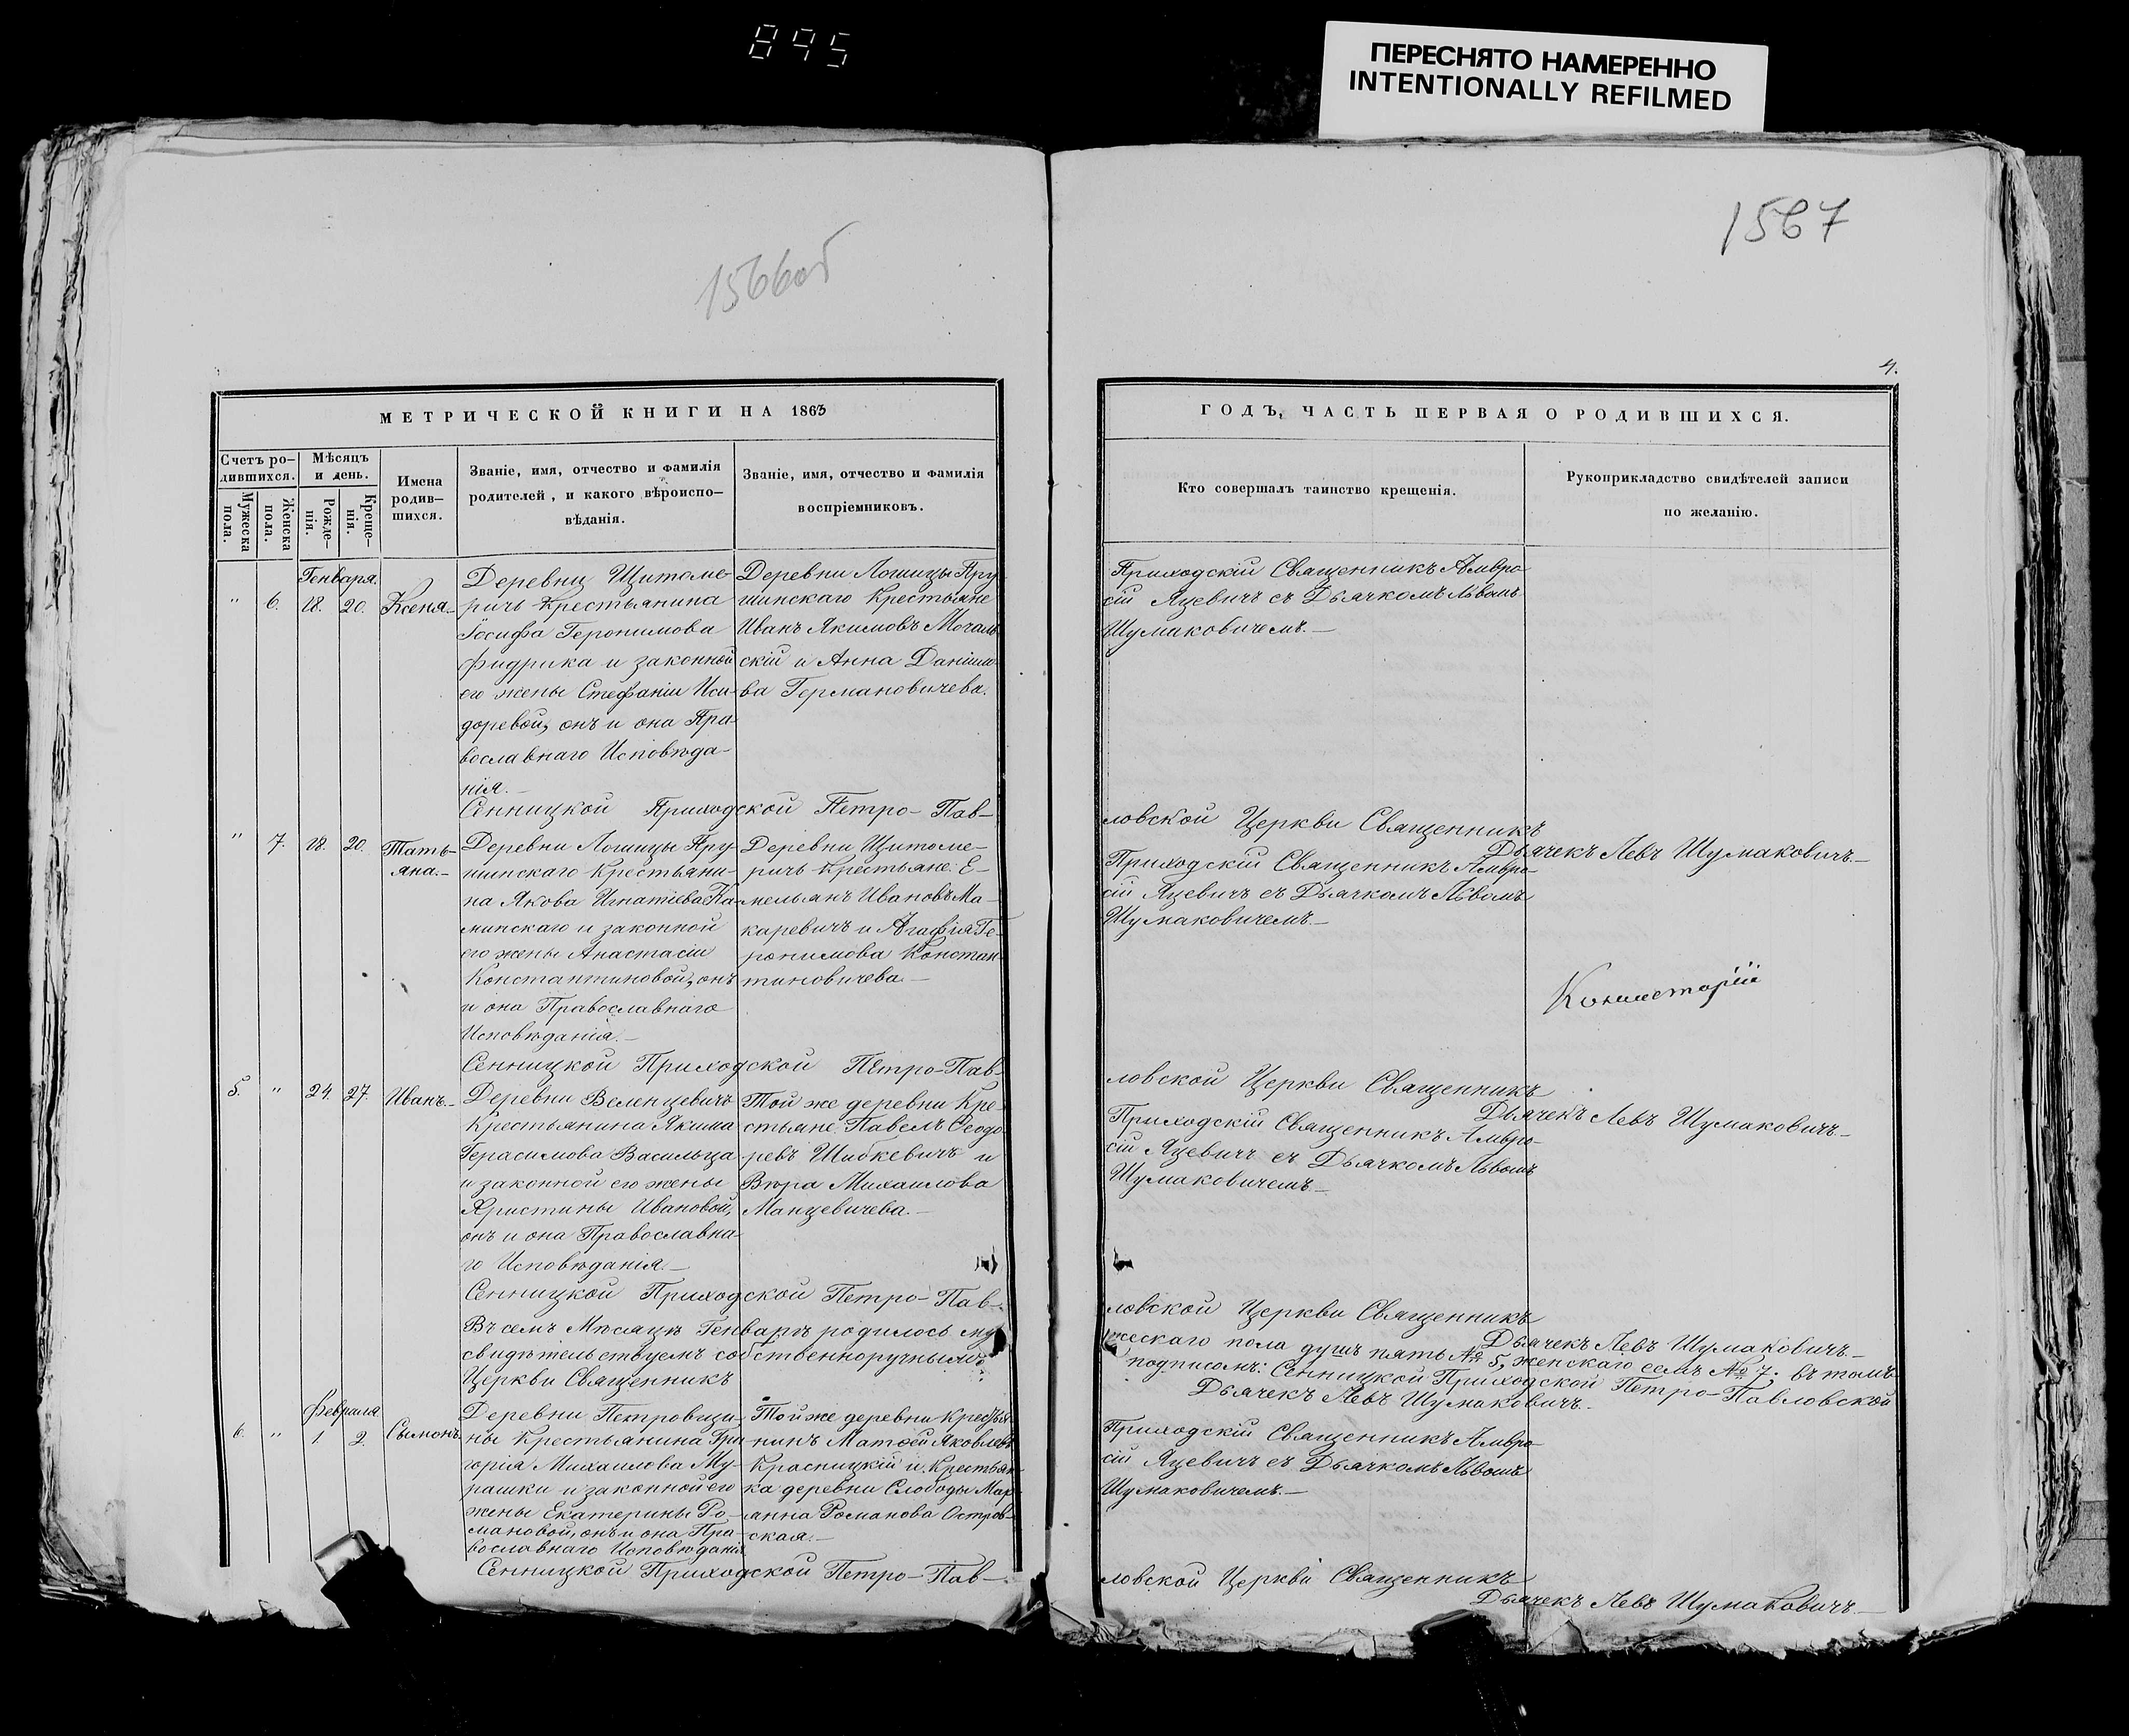 895
ПЕРЕСНЯТО НАМЕРЕННО
INTENTIONALLY REFILMED
1566об
1567
4.
МЕТРИЧЕСКОЙ КНИГИ НА 1863
Счетъ ро-
дившихся.
Мужеска
пола.
Женска
пола.
Мѣсяцъ
и день.
Рожде-
нія.
Креще-
нія.
Имена
родив-
шихся.
Званіе, имя, отчество и фамилія
родителей, и какого вѣроиспо-
вѣданія.
Званіе, имя, отчество и фамилія
воспріемниковъ.
ГОДЪ, ЧАСТЬ ПЕРВАЯ О РОДИВШИХСЯ.
Кто совершалъ таинство крещенія.
Рукоприкладство свидѣтелей записи
по желанію.
Генваря.
" 6. 18. 20. Ксенія.
Деревни Щитоме-
ричъ Крестьянина
Іосифа Геронимова
Фидрика и законной
его жены Стефаніи Иси-
доревой, онъ и она Пра-
вославнаго Исповѣда-
нія.
Деревни Лошицы Пру-
шинскаго Крестьяне
Иванъ Якимовъ Мочаль-
скій и Анна Даніило-
ва Германовичева.
Приходскій Священникъ Амвро-
сій Яцевичъ съ Дьячкомъ Львомъ
Шумаковичемъ.
Сенницкой Приходской Петро-Пав-
ловской Церкви Священникъ
Дьячекъ Левъ Шумаковичъ.
" 7. 18. 20. Тать-
яна.
Деревни Лошицы Пру-
шинскаго Крестьяни-
на Якова Игнатіева Ка-
минскаго и законной
его жены Анастасіи
Константиновой, онъ
и она Православнаго
Исповѣданія.
Деревни Щитоме-
ричъ Крестьяне Е-
мельянъ Ивановъ Ма-
каревичъ и Агафія Ге-
ронимова Констан-
тиновичева.
Приходскій Священникъ Амвро-
сій Яцевичъ съ Дьячкомъ Львомъ
Шумаковичемъ.
Консисторіи
Сенницкой Приходской Петро-Пав-
ловской Церкви Священникъ
Дьячекъ Левъ Шумаковичъ.
5. " 24. 27. Иванъ.
Деревни Веленцевичъ
Крестьянина Якима
Герасимова Васильца
и законной его жены
Христины Ивановой,
онъ и она Православна-
го Исповѣданія.
Той же деревни Кре-
стьяне Павелъ Ѳеодо-
ревъ Шибкевичъ и
Вѣра Михаилова
Манцевичева.
Приходскій Священникъ Амвро-
сій Яцевичъ съ Дьячкомъ Львомъ
Шумаковичемъ.
Сенницкой Приходской Петро-Пав-
ловской Церкви Священникъ
Дьячекъ Левъ Шумаковичъ.
Въ семъ Мѣсяцѣ Генварѣ родилось му-
жескаго пола душъ пять № 5, женскаго семь № 7; въ томъ
свидѣтельствуемъ собственноручнымъ
подписомъ: Сенницкой Приходской Петро-Павловской
Церкви Священникъ
Дьячекъ Левъ Шумаковичъ.
Февраля
6. " 1. 2. Сымонъ.
Деревни Петровщи-
ны Крестьянина Гри-
горія Михаилова Му-
рашки и законной его
жены Екатерины Ро-
мановой, онъ и она Пра-
вославнаго Исповѣданія
Той же деревни Крестья-
нинъ Матѳей Яковлевъ
Красницкій и Крестьян-
ка деревни Слободы Мар-
анна Романова Остров-
ская.
Приходскій Священникъ Амвро-
сій Яцевичъ съ Дьячкомъ Львомъ
Шумаковичемъ.
Сенницкой Приходской Петро-Пав-
ловской Церкви Священникъ
Дьячекъ Левъ Шумаковичъ.